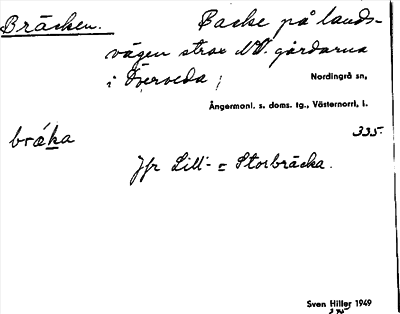 Bräcken. Backe på lands-
vägen strax NV. gårdarna
i Överveda,
Nordingrå sn,
Ångermanl. s. doms. tg., Västernorrl. l.
335.
bräka
Jfr Lill- = Storbräcka.
Sven Hiller 1949